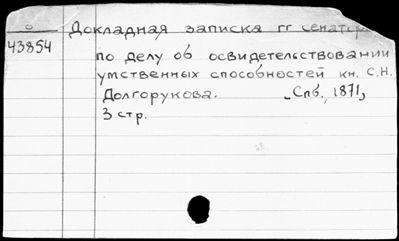 Докладная записка гг сенатор
43854
по делу об освидетельствовании
умственных способностей кн. С.Н.
Долгорукова. Спб, 1871,
3 стр.